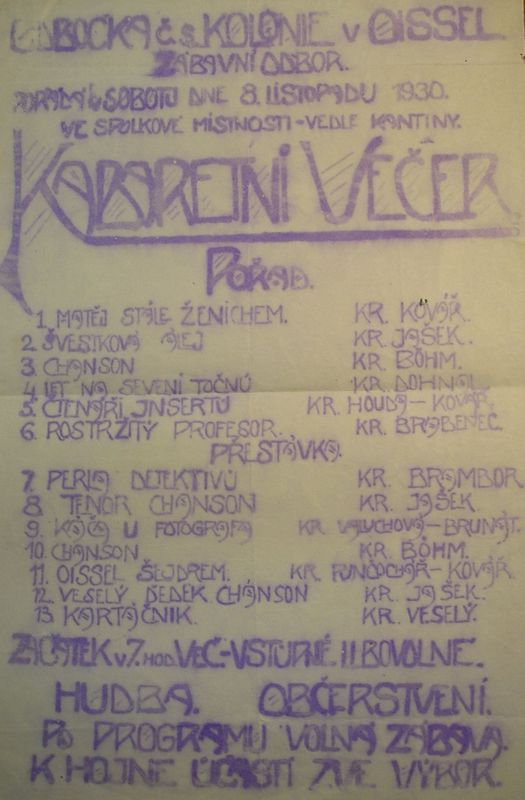 ODBOČKA Č.S. KOLONIE V OISSEL
ZÁBAVNÍ ODBOR.
POŘÁDÁ V SOBOTU DNE 8. LISTOPADU 1930.
VE SPOLKOVÉ MÍSTNOSTI-VEDLE KANTINY.
KABARETNÍ VEČER
POŘAD.
1. MATĚJ STÁLE ŽENICHEM. KR. KOVÁŘ.
2. ŠVESTKOVÁ ALEJ KR. JAŠEK.
3. CHANSON KR. BÖHM.
4. LET NA SEVENÍ TOČNÚ KR. DOHNAL
5. ČTENÁŘI JNSERTŮ KR. HOUDA-KOVÁŘ.
6. ROSTRŽITÝ PROFESOR. KR. BRABENEC.
PŘESTÁVKA.
7. PERLA DETEKTIVŮ KR. BRAMBOR.
8. TENOR CHANSON KR. JAŠEK
9. KÁČA U FOTOGRAFA KR. VALUCHOVÁ-BRUNÁT.
10. CHANSON KR. BÖHM.
11. OISSEL ŠEJDREM. KR. PUNČOCHÁŘ-KOVÁŘ.
12. VESELÝ DEDEK CHANSON KR. JAŠEK.
13. KARTÁČNIK. KR. VESELÝ.
ZAČÁTEK V 7. HOD. VEČ-VSTUPNÉ
HUDBA. OBČERSTVENÍ.
PO PROGRAMU VOLNÁ ZÁBAVA.
K HOJNÉ ÚČASTI ZVE VÝBOR.